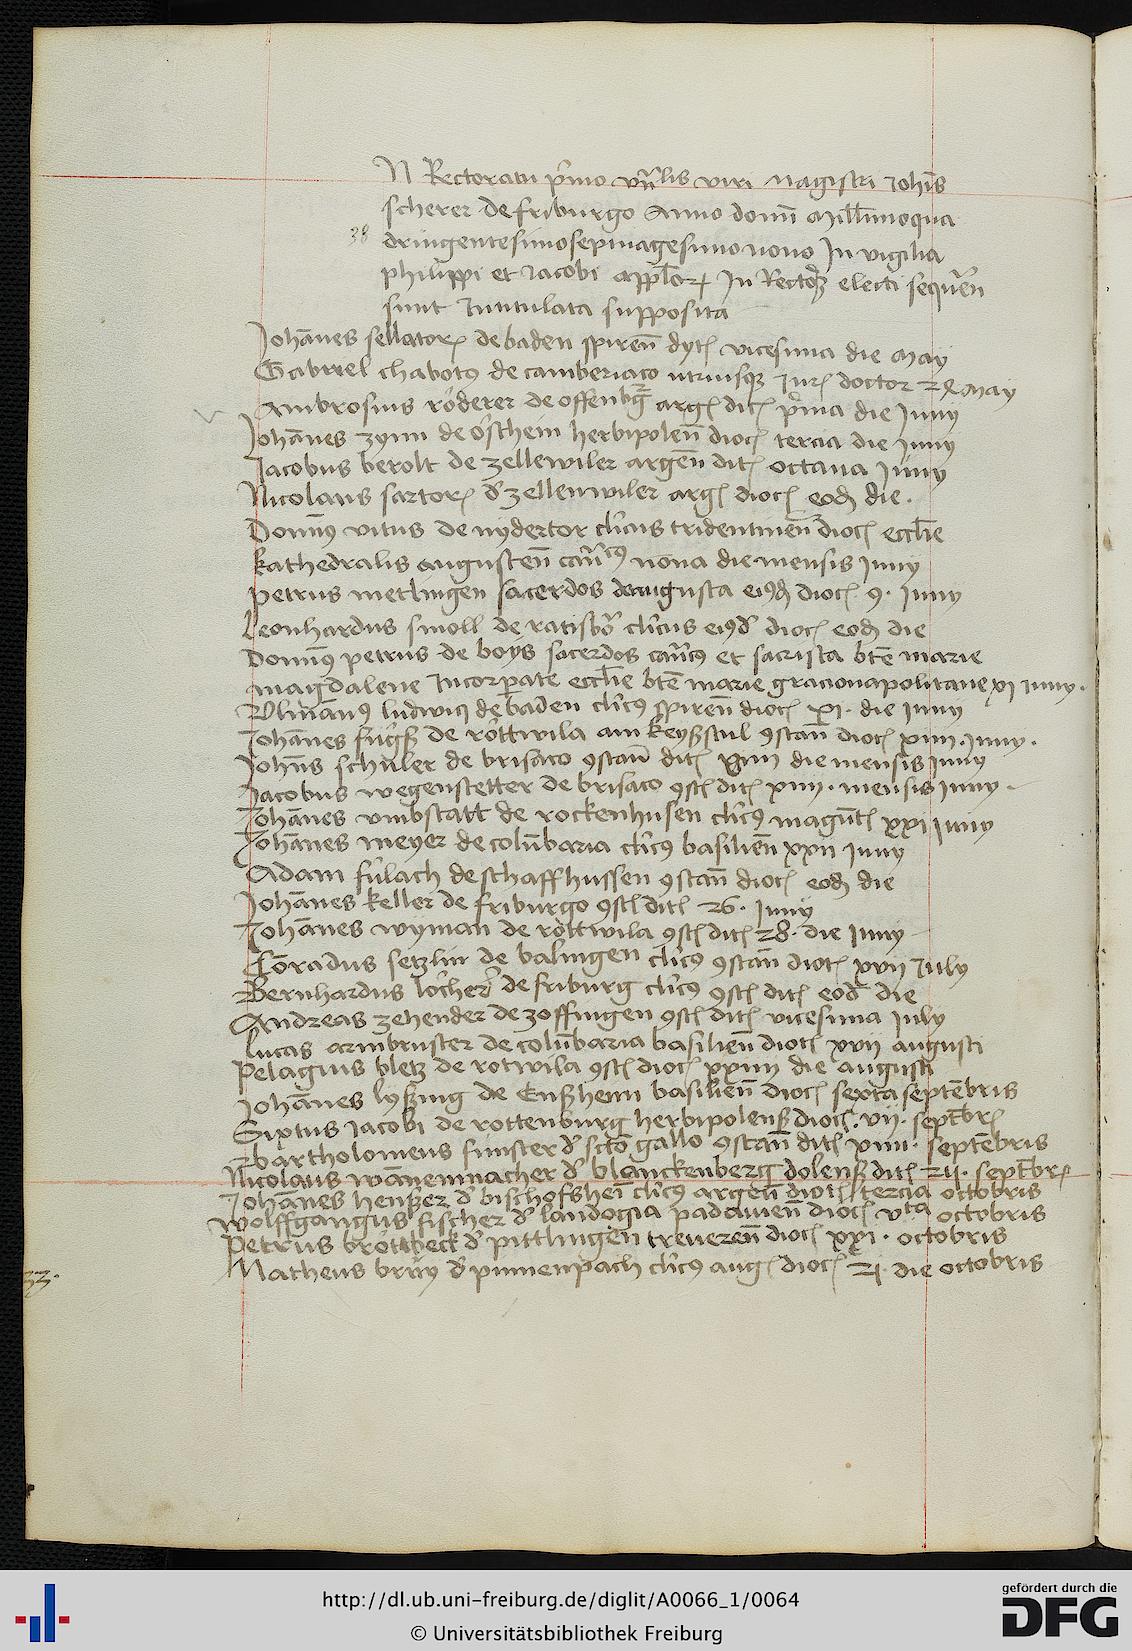 N Rectoratu p̄mo vn̄lis viri magistri Johis
scherer de friburgo Anno domi Mill̄imoqua
38 dringentesimoseptuagesimo nono In vigilia
philippi et Jacobi app̄lor In Rectorē electi sequūn
sunt Intitulata supposita
Johānes sellator de baden spiren̄ dyt vicesima die May
Gabriel chabot9 de camberiaco utriusq Jur doctor 24 May
Ambrosius röderer de offenbg arg dit p̄ma die Juny
Johānes zynn de oschem herbipolen̄ dioc tercia die Juny
Jacobus berolt de zellewiler argen̄ dit octava Juny
Nicolaus sartor d' zellenwiler arg dioc eod die.
Domin9 vitus de nydertor cl̄icus tridentinen̄ dioc eccl̄ie
kathedralis augusten̄ can̄ic9 nona die mensis Juny
petrus metlingen sacerdos de augusta ei9d dioc 9. Juny
Leonhardus smoll de ratisbo cl̄icus ei9d dioc eod die
Domin9 petrus de boys sacerdos can̄ic9 et sacrista bt̄e marie
magdalene Incorp̄ate eccl̄ie bt̄e marie gracionapolitane xj Juny.
Vlmān9 ludwici de baden cl̄ic9 spiren̄ dioc xj. die Juny
Johānes fugß de röttwila am keyßstul 9stan̄ dioc xiiii. Juny.
Johān̄s schuler de brisaco 9stan̄ dit xiiii die mensis Juny
Jacobus wegenstetter de brisaco 9st dit xiiij. mensis Juny.
Johānes vmbstatt de rockenhusen cl̄ic9 magūt xxj Juny
Johānes meyer de colūbaria cl̄ic9 basilien̄ xxij Juny
Adam fülach de schaffhussen 9stan̄ dioc eod die
Johānes keller de friburgo 9st dit 26. Juny
Johānes wyman de röttwila 9st dit 28. die Juny
Cōradus setzlin de balingen cl̄ic9 9stan̄ dioc xvij July
Bernhardus löcher de friburg cl̄ic9 9st dit eod die
Andreas zehender de zoffingen 9st dit vicesima July
lucas armbruster de colūbaria basilien̄ dioc xvij augusti
Pelagius bletz de rotwila 9st dioc xxiiij die augusti
Johānes lyßing de Enßheim basilien̄ dioc sexta septēbris
Sixtus Jacobi de rottenburg herbipolenß dioc. vij. septēbr
bartholomeus simster d' scto gallo 9stan̄ dit xiiii. septēbris
Nicolaus wānenmacher d' blanckenberg dolenß dit 24. septēbr
Johānes henßer d' bischofsheī cl̄ic9 argen̄ dioc tercia octobris
wolffgangus fischer d' landogia padauien̄ dioc vta octobris
Petrus bröttbeck d' pittlingen treueren̄ dioc xxj. octobris
33. Matheus brüy d' pumenpach cl̄ic9 aug dioc 21. die octobris
http://dl.ub.uni-freiburg.de/diglit/A0066_1/0064
© Universitätsbibliothek Freiburg
gefördert durch die
DFG